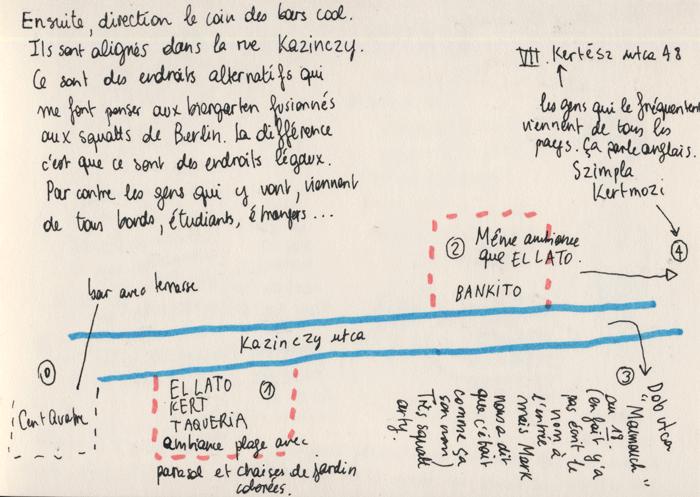 Ensuite, direction le coin des bars cool.
Ils sont alignés dans la rue Kazinczy.
Ce sont des endroits alternatifs qui
me font penser aux biergarten fusionnés
aux squatts de Berlin. La différence
c'est que ce sont des endroits légaux.
Par contre les gens qui y vont, viennent
de tous bords, étudiants, étrangers...
VII. Kertész utca 48
les gens qui le fréquentent
viennent de tous les
pays. Ça parle anglais.
Szimpla
Kertmozi
4
2 Même ambiance
que EL LATO.
BANKITO
bar avec terrasse
Kazinczy utca
0
Central
1
EL LATO
KERT
TAQUERIA
ambiance plage avec
parasol et chaises de jardin
colorées.
3
Dob utca
"Mamouch"
au 18
(en fait y'a
pas écrit le
nom à
l'entrée
mais Mark
nous a dit
que c'était
comme ça
son nom)
Très squatt
arty.